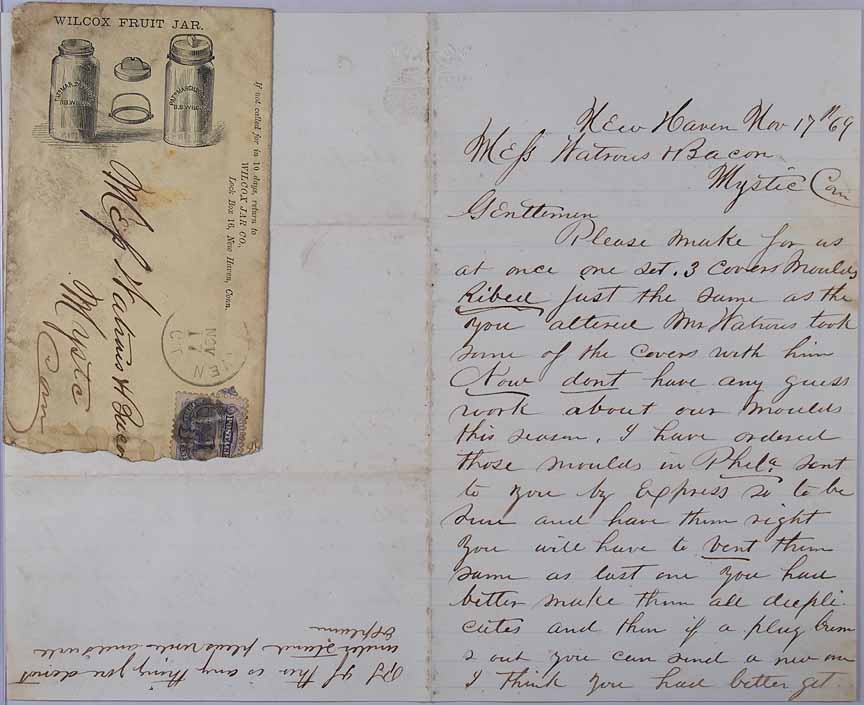 WILCOX FRUIT JAR.
B.B. WILCOX
If not called for in 10 days, return to
WILCOX JAR CO.,
Lock Box 16, New Haven, Conn.
Mess Watrous & Baco
Mystic
Con
NOV
17
CT
EN
POSTAGE
New Haven Nov 17th 69
Mess Watrous & Bacon
Mystic Con
Gentlemen
Please make for us
at once one set. 3 covers Moulds
Ribed just the same as the
you altered Mr Watrous took
some of the covers with him
Now dont have any guess
work about our moulds
this season. I have ordered
those moulds in Phila sent
to you by Express so to be
sure and have them right
you will have to vent them
same as last one you had
better make them all deepli
cates and then if a plug burn
s out you can send a new one
I think you had better get
PS If this is any thing you donot
understand please write and I will
Explain